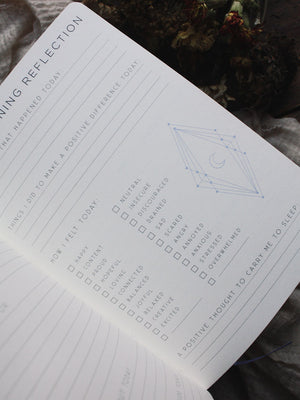 NING REFLECTION
HAT HAPPENED TODAY
THINGS I DID TO MAKE A POSITIVE DIFFERENCE TODAY
HOW I FELT TODAY:
HAPPY
CONTENT
PROUD
HOPEFUL
LOVING
CONNECTED
BALANCED
JOYFUL
RELAXED
CREATIVE
EXCITED
NEUTRAL
INSECURE
DISCOURAGED
DRAINED
SAD
SCARED
ANGRY
ANNOYED
ANXIOUS
STRESSED
OVERWHELMED
A POSITIVE THOUGHT TO CARRY ME TO SLEEP